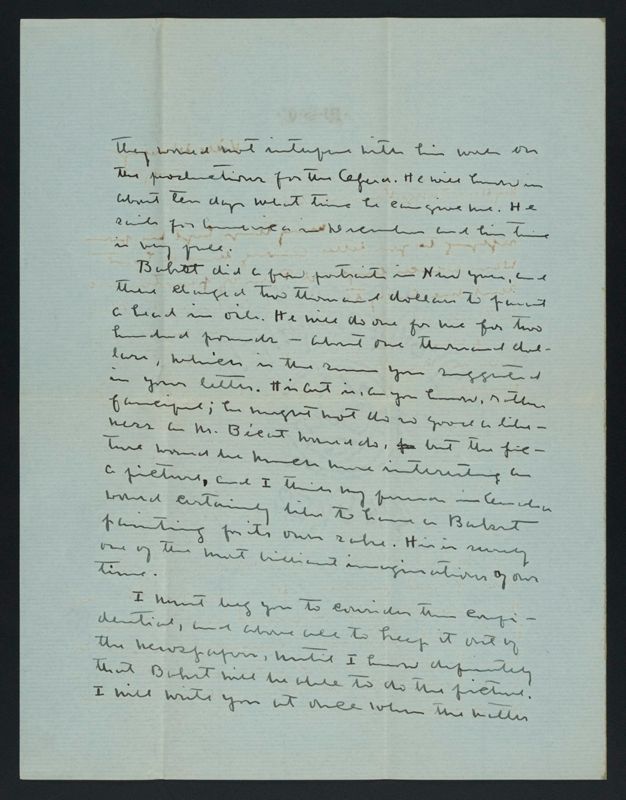 they would not interfere with his work on
the productions for the Opera. He will know in
about ten days what time he can give me. He
sails for America in December and his time
is very full.
Bakst did a few portraits in New York, and
there charged two thousand dollars to paint
a head in oils. He will do one for me for two
hundred pounds - about one thousand dol-
lars, which is the sum you suggested
in your letter. His art is, as you know, rather
fanciful; he might not do so good a like-
ness as Mr. Bécat would do, but the pic-
ture would be much more interesting as
a picture, and I think my person in
would certainly like to have a Bakst
painting for its own sake. His is surely
one of the most brilliant imaginations of our
time.
I must beg you to consider this confi-
dential, and above all to keep it out of
the newspapers, until I know definitely
that Bakst will be able to do the picture.
I will write you at once when the matter